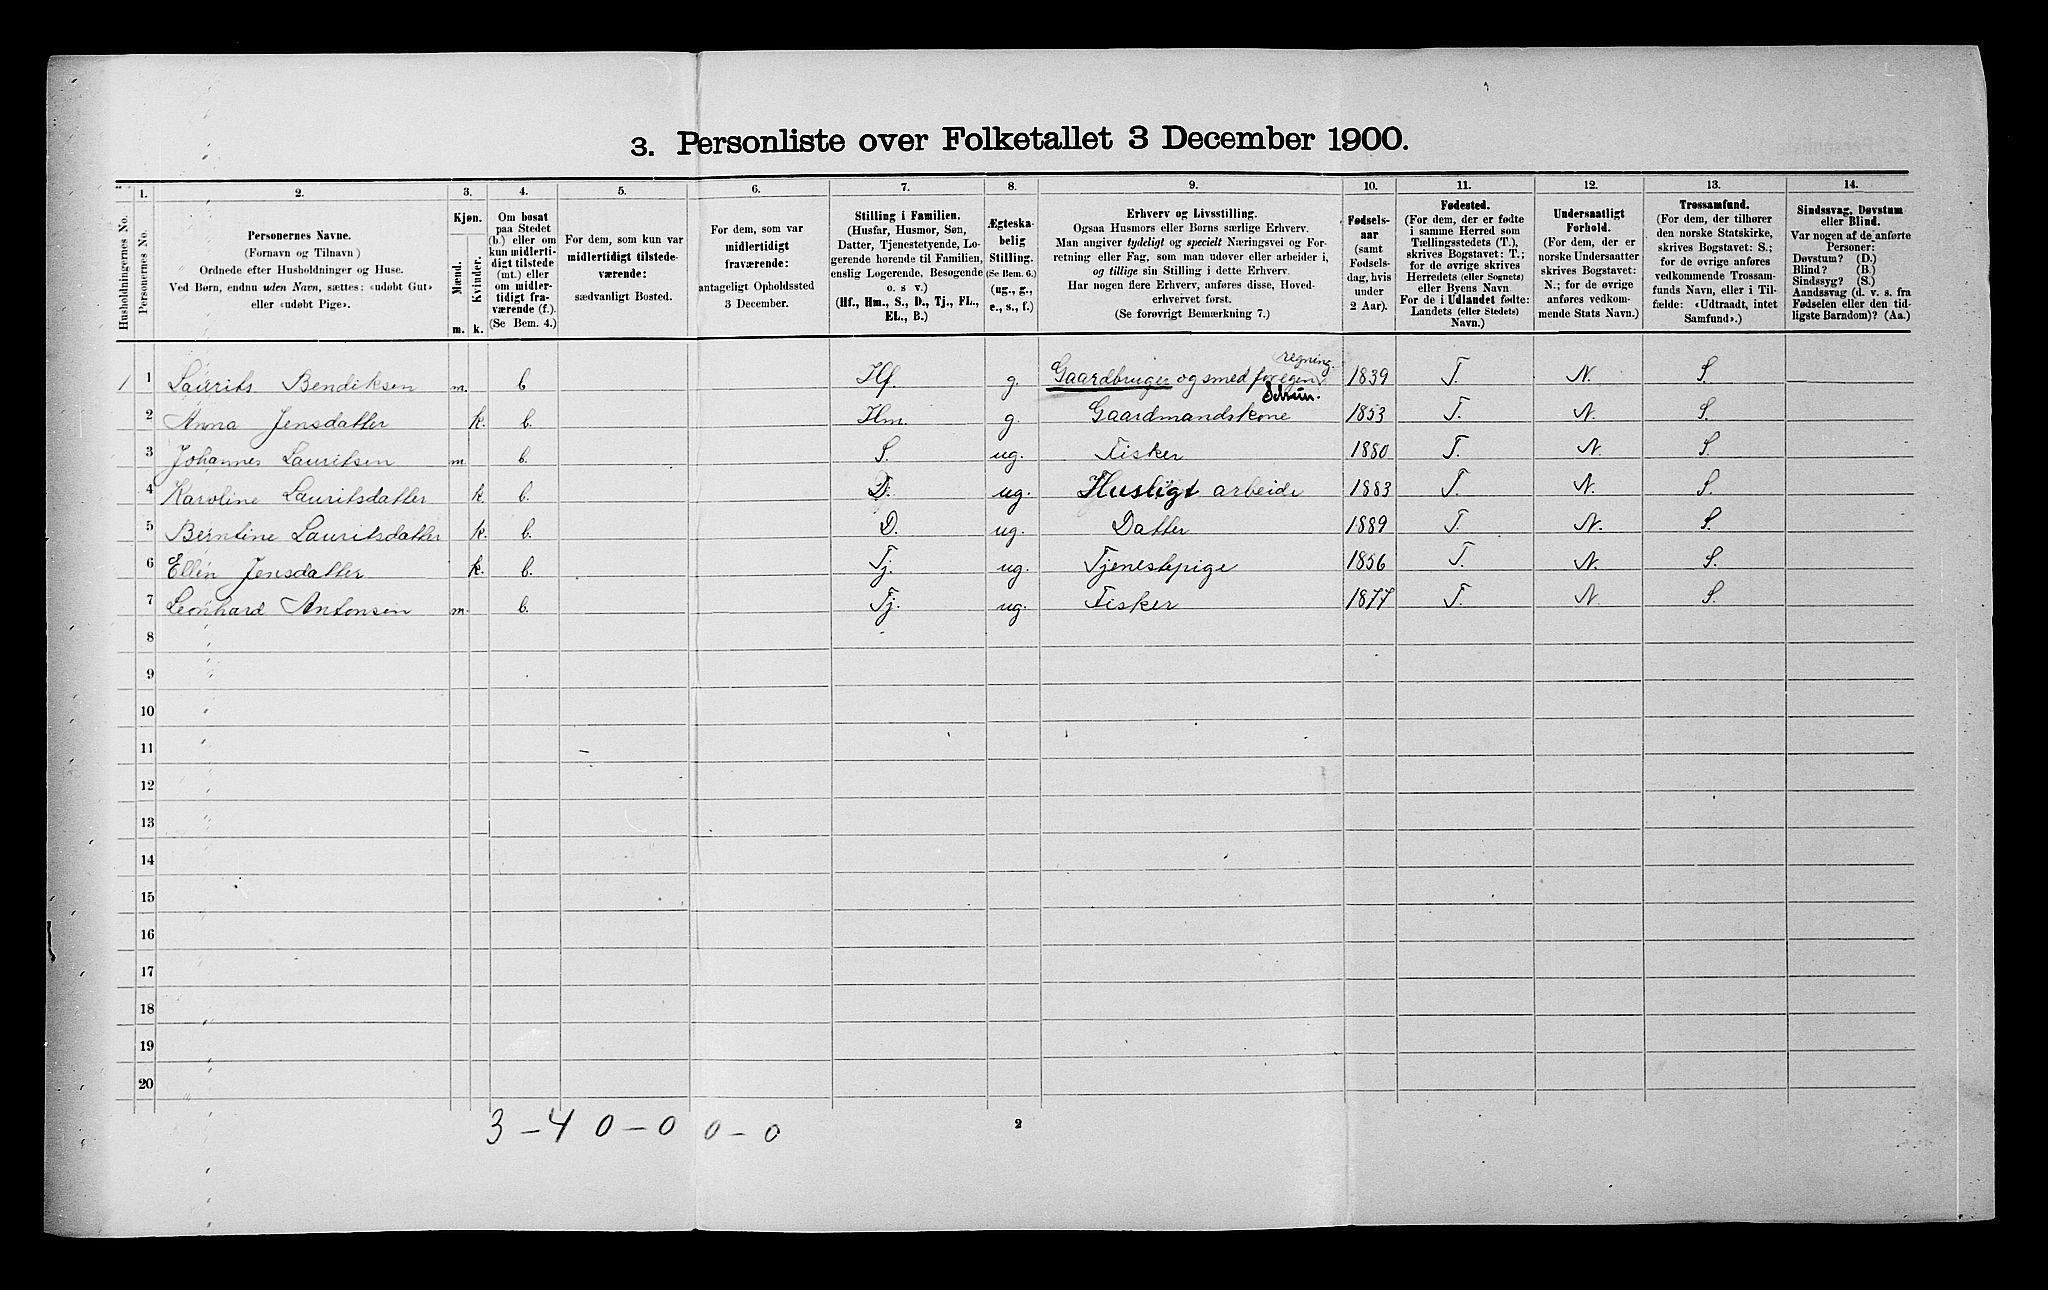 3. Personliste over Folketallet 3 December 1900.
1. 2. 3. 4. 5. 6. 7. 8. 9. 10. 11. 12. 13. 14.
Husholdningernes No.
Personernes No.
Personernes Navne.
(Fornavn og Tilnavn)
Ordnede efter Husholdninger og Huse.
Ved Børn, endnu uden Navn, sættes: «udøbt Gut»
eller «udøbt Pige».
Kjøn.
Mænd.
Kvinder.
m. k.
Om bosat
paa Stedet
(b.) eller om
kun midlerti-
digt tilstede
(mt.) eller
om midler-
tidigt fra-
værende (f.).
(Se Bem. 4.)
For dem, som kun var
midlertidigt tilstede-
værende:
sædvanligt Bosted.
For dem, som var
midlertidigt
fraværende:
antageligt Opholdssted
3 December.
Stilling i Familien.
(Husfar, Husmor, Søn,
Datter, Tjenestetyende, Lo-
gerende hørende til Familien,
enslig Logerende, Besøgende
o. s. v.)
(Hf., Hm., S., D., Tj., FL.,
EL., B.)
Ægteska-
belig
Stilling.
(Se Bem. 6.)
(ug., g.,
e., s., f.)
Erhverv og Livsstilling.
Ogsaa Husmors eller Børns særlige Erhverv.
Man angiver tydeligt og specielt Næringsvei og For-
retning eller Fag, som man udøver eller arbeider i,
og tillige sin Stilling i dette Erhverv.
Har nogen flere Erhverv, anføres disse, Hoved-
erhvervet først.
(Se forøvrigt Bemærkning 7.)
Fødsels-
aar
(samt
Fødsels-
dag, hvis
under
2 Aar).
Fødested.
(For dem, der er fødte
i samme Herred som
Tællingsstedets (T.),
skrives Bogstavet: T.;
for de øvrige skrives
Herredets (eller Sognets)
eller Byens Navn
For de i Udlandet fødte:
Landets (eller Stedets)
Navn.)
Undersaatligt
Forhold.
(For dem, der er
norske Undersaatter
skrives Bogstavet:
N.; for de øvrige
anføres vedkom-
mende Stats Navn.)
Trossamfund.
(For dem, der tilhører
den norske Statskirke,
skrives Bogstavet: S.;
for de øvrige anføres
vedkommende Trossam-
funds Navn, eller i Til-
fælde: «Udtraadt, intet
Samfund».)
Sindssvag, Døvstum
eller Blind.
Var nogen af de anførte
Personer:
Døvstum? (D.)
Blind? (B.)
Sindssyg? (S.)
Aandssvag (d. v. s. fra
Fødselen eller den tid-
ligste Barndom)? (Aa.)
regning.
1 1 Laurits Bendiksen m. b Hf g. Gaardbruger og smed for egen 1839 T. N. S.
2 Anna Jensdatter k. b. Hm. g. Gaardmandskone 1853 T. N. S.
3 Johannes Lauritsen m. b. S. ug. Fisker 1880 T. N. S.
4 Karoline Lauritsdatter k. b. D. ug. Husligt arbeide 1883 T. N. S.
5 Berntine Lauritsdatter k. b. D. ug. Datter 1889 T. N. S.
6 Ellen Jensdatter k. b. Tj. ug. Tjenestepige 1856 T. N. S.
7 Leonhard Antonsen m. b. Tj. ug. Fisker 1877 T. N. S.
8
9
10
11
12
13
14
15
16
17
18
19
20
3 – 4 0 – 0 0 – 0
2